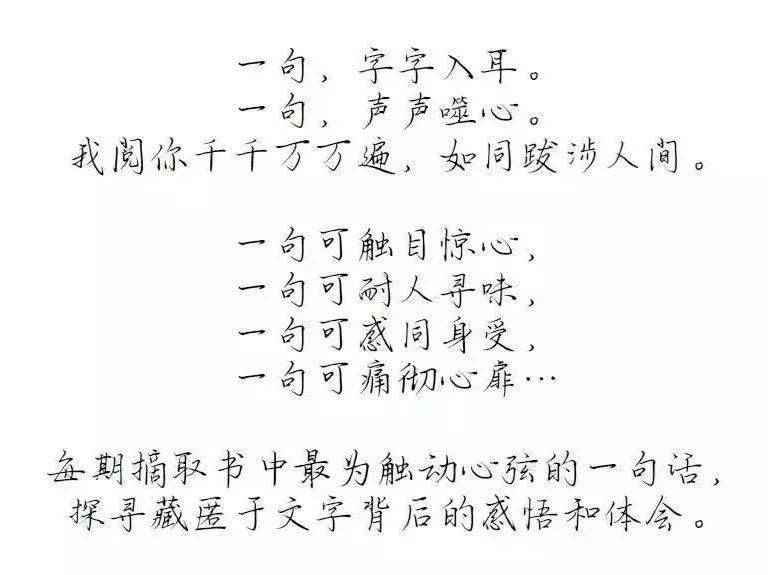 一句，字字入耳。
一句，声声噬心。
我阅你千千万万遍，如同跋涉人间。
一句可触目惊心，
一句可耐人寻味，
一句可感同身受，
一句可痛彻心扉…
每期摘取书中最为触动心弦的一句话，
探寻藏匿于文字背后的感悟和体会。